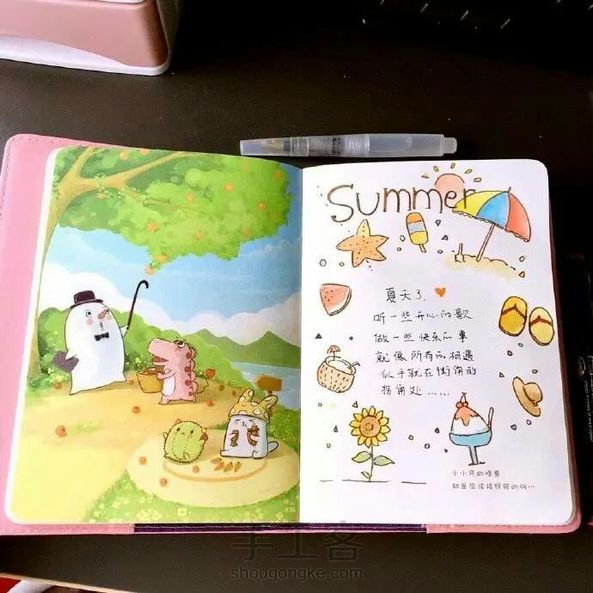 Summer
夏天了.
听一些开心的歌
做一些快乐的事
就像所有的相遇
似乎就在街角的
拐角处......
小小兄的怪兽
就是应该接接的
手工客
shougongke.com